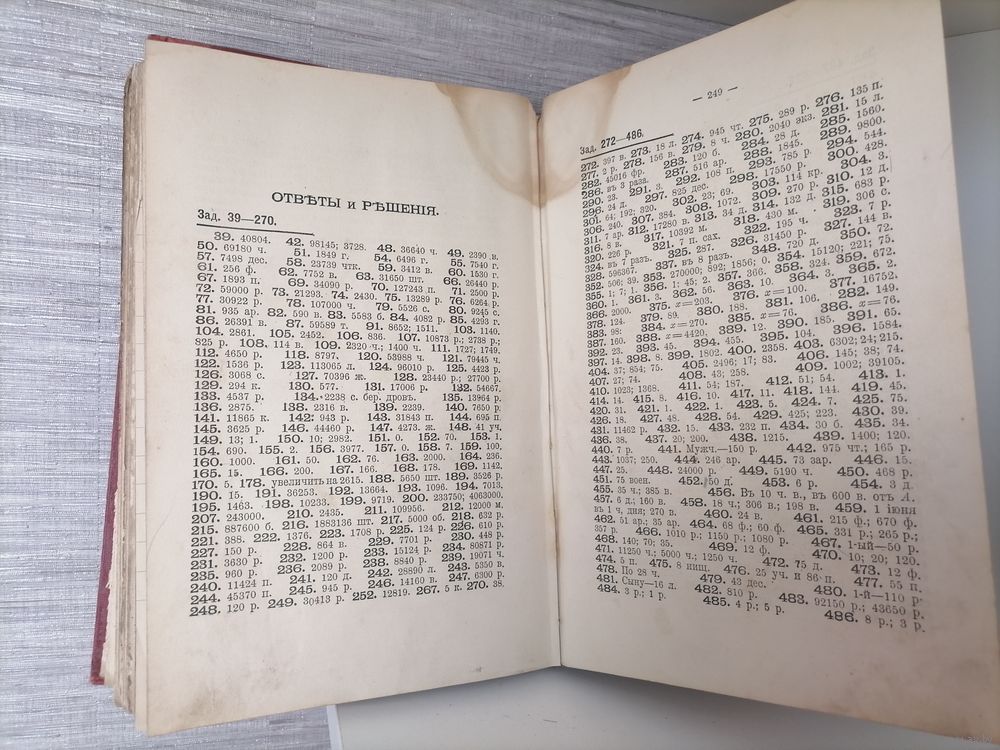 ОТВѢТЫ и РѢШЕНІЯ.
Зад. 39—270.
39. 40804. 42. 98145; 3728. 48. 36640 ч. 49. 2390 в.
50. 69180 ч. 51. 1849 г. 54. 6496 г. 55. 7540 г.
57. 7498 дес. 58. 23739 чтк. 59. 3412 в. 60. 1530 г.
61. 256 ф. 62. 7752 в. 63. 31650 шт. 66. 26440 г.
67. 1893 п. 69. 34090 г. 70. 127243 п. 71. 2500 г.
72. 59000 р. 73. 21293. 74. 2430. 75. 13289 г. 76. 6264 г.
77. 30922 р. 78. 107000 ч. 79. 5526 с. 80. 9245 с.
81. 935 ар. 82. 590 в. 83. 5583 б. 84. 4082 р. 85. 4293 г.
86. 26391 в. 87. 59589 т. 91. 8652; 1511. 103. 1140.
104. 2861. 105. 2452. 106. 836. 107. 10873 р.; 2738 р.;
825 р. 108. 114 в. 109. 2320 ч.; 1400 ч. 111. 1727; 1749.
112. 4650 р. 118. 8797. 120. 53988 ч. 121. 79445 ч.
122. 1536 р. 123. 113065 л. 124. 96010 р. 125. 4423 р.
126. 3068 с. 127. 70396 ж. 128. 23440 р.; 27700 р.
129. 294 к. 130. 577. 131. 17006 р. 132. 54667.
133. 4537 р. 134. 2238 с. бер. дровъ. 135. 13964 р.
136. 2875. 138. 2316 в. 139. 2239. 140. 7650 р.
141. 41865 к. 142. 943 р. 143. 31843 п. 144. 695 п.
145. 3625 р. 146. 44460 р. 147. 4273. ж. 148. 41 уч.
149. 13; 1. 150. 10; 2982. 151. 0. 152. 70. 153. 1.
154. 690. 155. 2. 156. 3977. 157. 0. 158. 7. 159. 100.
160. 1000. 161. 50. 162. 76. 163. 2000. 164. 236.
165. 15. 166. 200. 167. 166. 168. 178. 169. 1142.
170. 5. 178. увеличить на 2615. 188. 5650 шт. 189. 3526 р.
190. 15. 191. 36253. 192. 13664. 193. 1096. 194. 7013.
195. 1463. 198. 10233. 199. 9719. 200. 233750; 4063000.
207. 243000. 210. 2435. 211. 109956. 212. 12000 м.
215. 887600 б. 216. 1883136 шт. 217. 5000 об. 218. 632 р.
221. 388. 222. 1376. 223. 1708 р. 225. 124 р. 226. 610 р.
227. 150 р. 228. 864 в. 229. 7701 р. 230. 448 р.
231. 3630 р. 232. 1200 р. 233. 15124 р. 234. 80871 р.
235. 960 р. 236. 2089 р. 238. 8840 р. 239. 19071 ч.
240. 11424 п. 241. 120 д. 242. 28890 л. 243. 5350 в.
244. 45370 п. 245. 945 р. 246. 14160 в. 247. 6300 р.
248. 120 р. 249. 30413 р. 252. 12819. 267. 5 к. 270. 38.
— 249 —
Зад. 272—486.
272. 397 в. 273. 18 л. 274. 945 чт. 275. 289 р. 276. 135 п.
277. 2 р. 278. 156 в. 279. 8 ч. 280. 2040 экз. 281. 15 л.
282. 45016 фр. 283. 120 б. 284. 28 д. 285. 1560.
286. въ 3 раза. 287. 516 ар. 288. 1845. 289. 9800.
290. 23. 291. 3. 292. 108 п. 293. 785 р. 294. 544.
296. 24 д. 297. 825 дес. 298. 17550 р. 300. 428.
301. 64; 192; 320. 302. 23; 69. 303. 114 кр. 304. 3.
306. 240. 307. 384. 308. 1072. 309. 270 р. 310. 12 д.
311. 7 ар. 312. 17280 в. 313. 34 д. 314. 132 д. 315. 683 р.
316. 8 в. 317. 10392 м. 318. 430 м. 319. 306 с.
320. 226 р. 321. 7 п. сах. 322. 195 ч. 323. 7 р.
324. въ 7 разъ. 325. 287. 326. 31450 р. 327. 144 в.
328. 596367. 337. въ 8 разъ. 348. 720 д. 350. 72.
352. 506; 43. 353. 270000; 892; 1856; 0. 354. 15120; 221; 75.
355. 1; 7; 1. 356. 1; 45; 2. 357. 366. 358. 324. 359. 672.
360. 1. 361. 3. 362. 56. 363. 10. 364. 3. 365. 2.
366. 2000. 375. x=203. 376. x=100. 377. 16752.
378. 124. 379. 89. 380. 188. 381. 106. 282. 149.
383. 98. 384. x=270. 385. x=76. 386. x=76.
387. 160. 388. x=4420. 389. 12. 390. 185. 391. 65.
392. 23. 393. 45. 394. 455. 395. 104. 396. 1584.
397. 14. 398. 8. 399. 1802. 400. 2358. 403. 6302; 24; 215.
404. 37; 854; 75. 405. 2496; 17; 83. 406. 145; 38; 74.
407. 27; 74. 408. 43; 258. 409. 1002; 39105.
410. 1023; 1368. 411. 54; 187. 412. 51; 54. 413. 1.
414. 14. 415. 8. 416. 10. 417. 11. 418. 144. 419. 45.
420. 31. 421. 1. 422. 1. 423. 5. 424. 7. 425. 75.
426. 18. 427. 48. 428. 54. 429. 425; 223. 430. 39.
431. 11462 р. 432. 15. 433. 232 п. 434. 30 б. 435. 34.
436. 38. 437. 20; 200. 438. 1215. 439. 1400; 120.
440. 7 р. 441. Мужч.—150 р. 442. 975 чт.; 165 р.
443. 1037; 250. 444. 246 ар. 445. 73 зар. 446. 15.
447. 25. 448. 24000 р. 449. 5190 ч. 450. 468 р.
451. 75 воен. 452. 50 д. 453. 6 р. 454. 3 д.
455. 35 ч.; 385 в. 456. Въ 10 ч. в., въ 600 в. отъ А.
457. 6 д.; 160 в. 458. 18 ч.; 306 в.; 198 в. 459. 1 іюня
въ 1 ч. дня; 270 в. 460. 24 в. 461. 215 ф.; 670 ф.
462. 51 ар.; 35 ар. 464. 68 ф.; 60 ф. 465. 331 р.; 265 р.;
357 р. 466. 1010 р.; 1150 р.; 1080 р. 467. 1-ый—50 р.
468. 140; 70; 35. 469. 12 ф. 470. 10; 20; 120.
471. 11250 ч.; 5000 ч.; 1250 ч. 472. 75 д. 473. 12 ф.
474. 5 п. 475. 8 нищ. 476. 25 уч. и 86 п. 477. 55 п.
478. По 28 ч. 479. 43 дес. 480. 1-й—110 р.
481. Сыну—16 л. 482. 810 р. 483. 92150 р.; 43650 р.
484. 3 р.; 1 р. 485. 4 р.; 5 р. 486. 8 р.; 3 р.